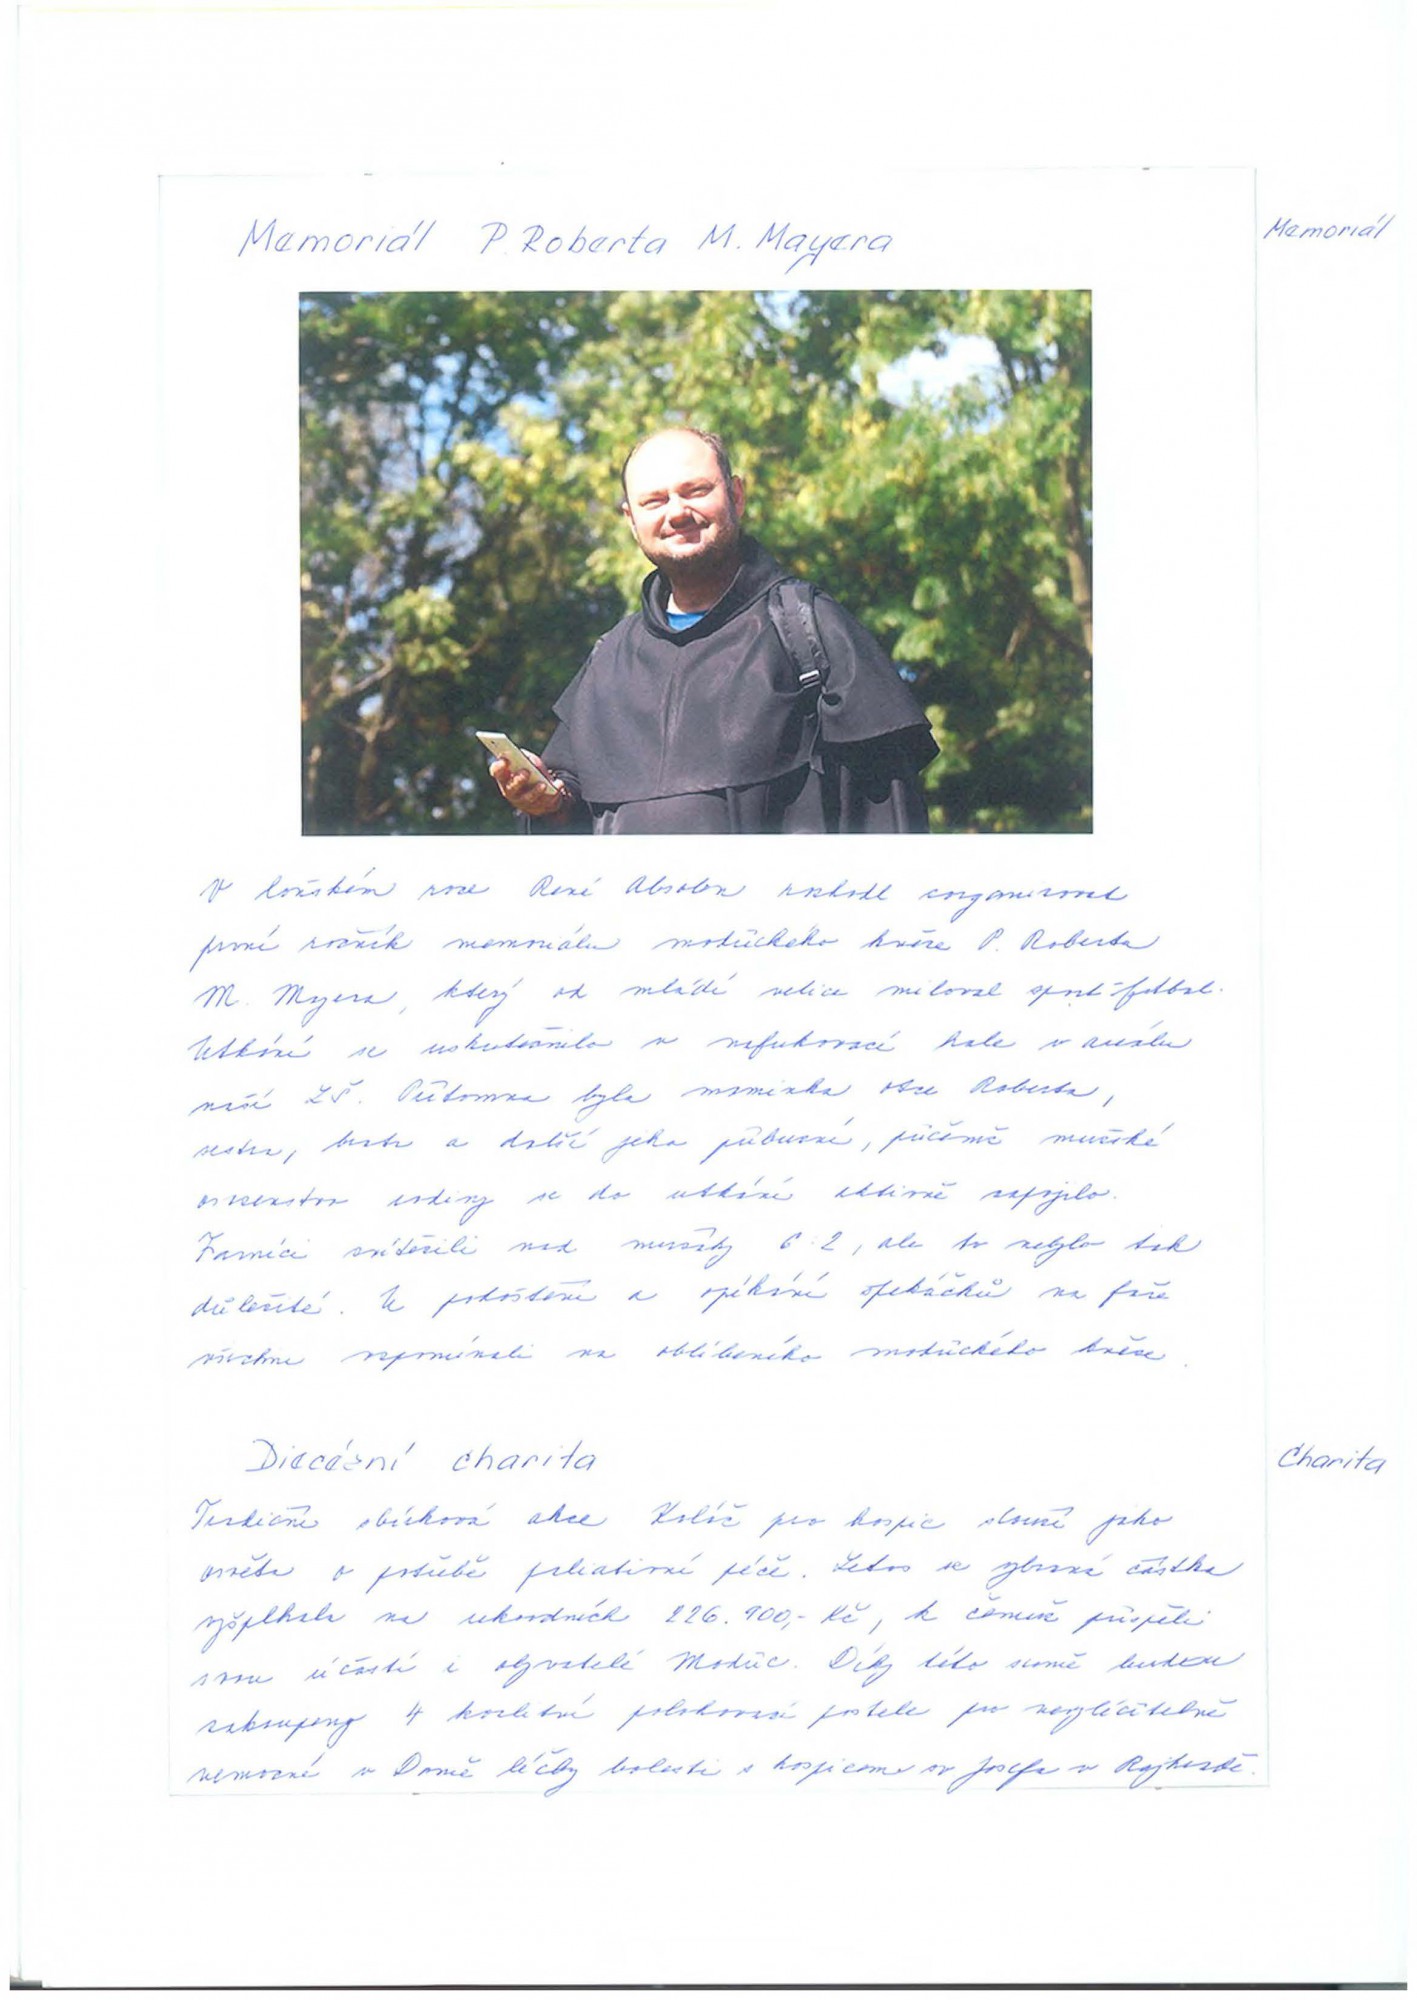 Memoriál P. Roberta M. Mayera
Memoriál
V loňském roce René Absolon rozhodl zorganizovat
první ročník memoriálu modřického kněze P. Roberta
M. Myera, který od mládí velice miloval sport-fotbal.
Utkání se uskutečnilo v nafukovací hale v areálu
naší ZŠ. Přítomna byla maminka otce Roberta,
sestra, bratr a další jeho příbuzní, přičemž mužské
osazenstvo rodiny se do utkání aktivně zapojilo.
Farníci zvítězili nad 6:2, ale to nebylo tak
důležité. U pohoštění a opékání špekáčků na faře
všichni vzpomínali na oblíbeného modřického kněze.
Diecézní charita
Charita
Tradiční sbírková akce Koláč pro hospic slouží jako
osvěta o potřebě paliativní péče. Letos se vybraná částka
vyšplhala na rekordních 226.900,- Kč, k čemuž přispěli
svou účastí i obyvatelé Modřic. Díky této sumě budou
zakoupeny 4 kvalitní polohovací postele pro nevyléčitelně
nemocné v Domě léčby bolesti s hospicem sv Josefa v Rajhradě.